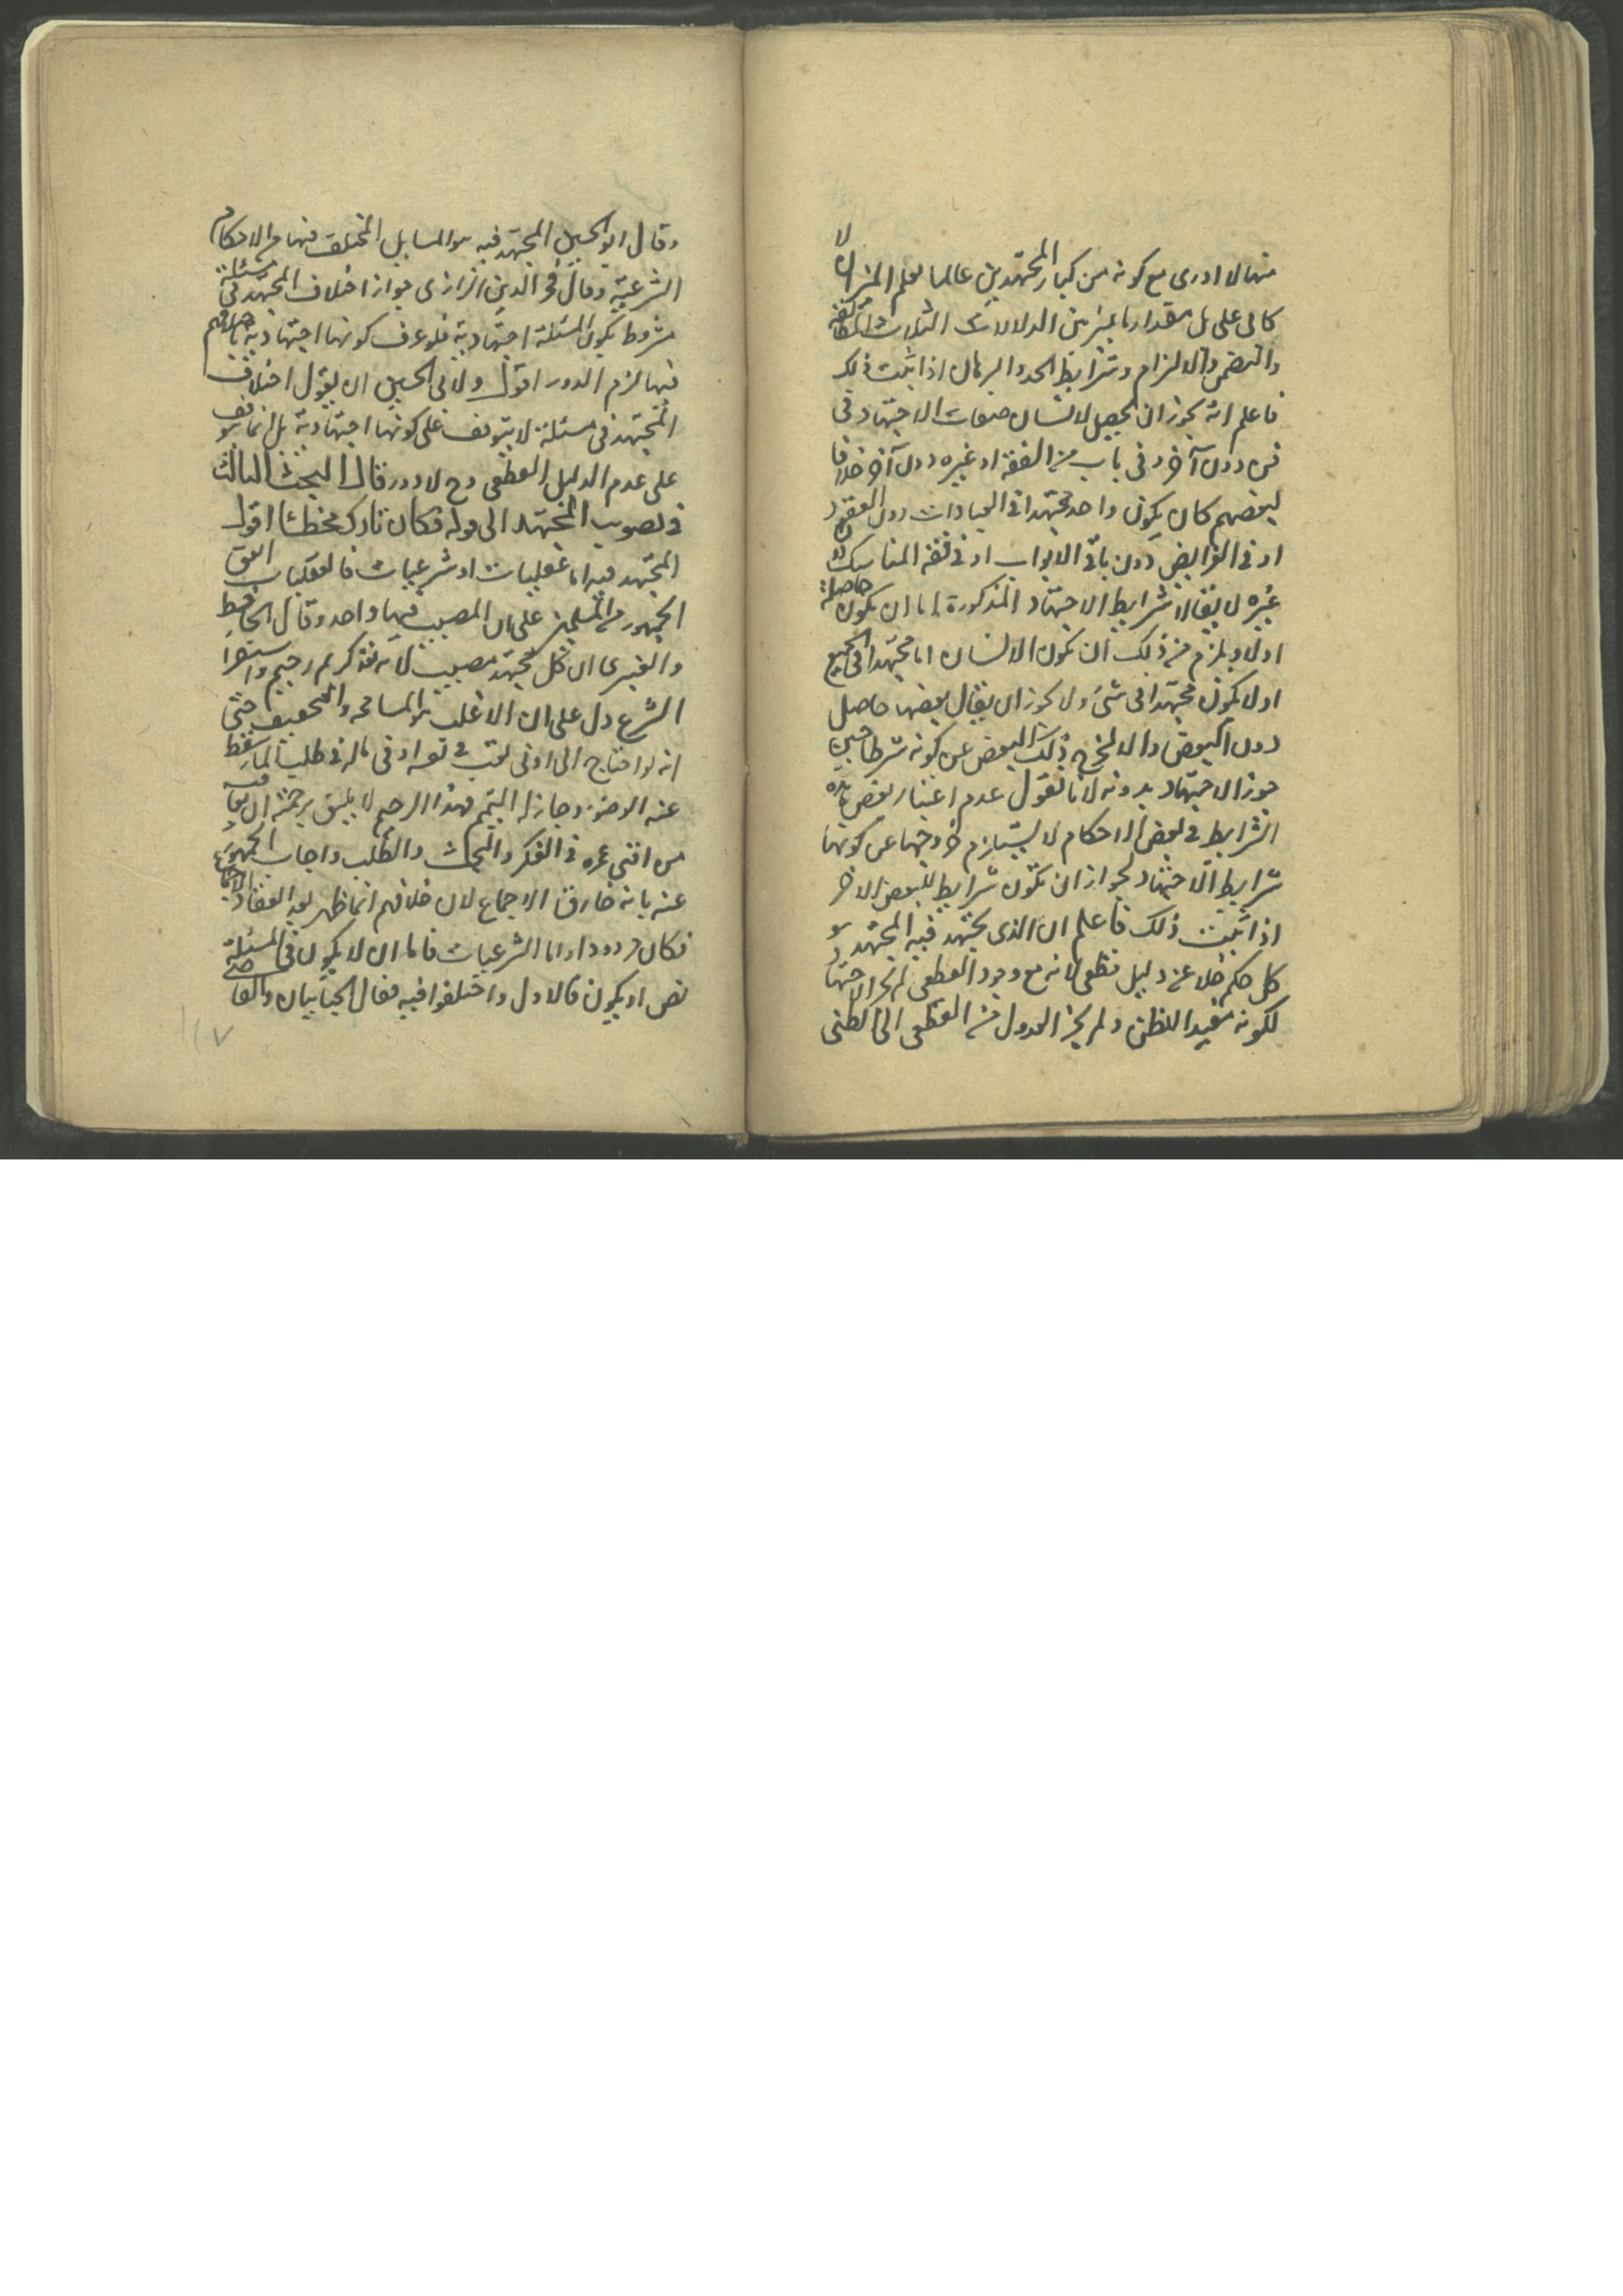 منها لا ادرى مع كونه من كبار المجتهدين عالما بعلم الميزان لا
كان على بل مقدار ما يميز بين الدلالات الثلاث المطابقة
والتضمن والالتزام وشرايط الحد والبرهان اذا ثبت ذلك
فاعلم انه يجوز ان يحصل لانسان صفات الاجتهاد فى
فن دون آخر وفى باب من الفقه او غيره دون آخر خلافا
لبعضهم كان يكون واحد مجتهدا فى العبادات دون العقود
او فى الفرايض دون باقى الابواب او فى فقه المناسك دون
غيره لا يقال شرايط الاجتهاد المذكورة اما ان يكون حاصلة
اولا ويلزم من ذلك ان يكون الانسان اما مجتهدا فى الجميع
او لا يكون مجتهدا فى شئ ولا يجوز ان يقال بعضها حاصل
دون البعض والا لخرج ذلك البعض عن كونه شرطا حين
جوز الاجتهاد بدونه لانا نقول عدم اعتبار بعض هذه
الشرايط فى بعض الاحكام لا يستلزم خروجها عن كونها
شرايط الاجتهاد لجواز ان تكون شرايط للبعض الاخر
اذا ثبت ذلك فاعلم ان الذى يجتهد فيه المجتهد هو
كل حكم خلا عن دليل قطعى لانه مع وجود القطعى لم يجز الاجتهاد
لكونه مفيدا للظن ولم يجز العدول من القطعى الى الظنى
وقال ابو الحسين المجتهد فيه هو المسايل المختلف فيها من الاحكام
الشرعية وقال فخر الدين الرازى جواز اختلاف المجتهد فى مسئلة
مشروط بكون المسئلة اجتهادية فلو عرف كونها اجتهادية باختلافهم
فيها لزم الدور اقول ولابى الحسين ان يقول اختلاف
المجتهد فى مسئلة لا يتوقف على كونها اجتهادية بل انما يتوقف
على عدم الدليل القطعى وح لا دور قال البحث الثالث
فى تصويب المجتهد الى قوله فكان تاركه مخطئا اقول
المجتهد فيه اما عقليات او شرعيات فالعقليات اتفق
الجمهور من المسلمين على ان المصيب فيها واحد وقال الجاحظ
والعنبرى ان كل مجتهد مصيب لانه تعالى كريم رحيم واستقراء
الشرع دل على ان الاغلب هو المسامحه والتخفيف حتى
انه لو احتاج الى ادنى تعب فى نفسه او فى ماله فى طلب الماء سقط
عنه الوضوء وجاز له التيمم فهذا الرحيم لا يليق برحمته ان يعاقب
من افنى عمره فى الفكر والبحث والطلب واجاب الجمهور
عنه بانه خارق الاجماع لان خلافهم انما ظهر بعد انعقاد الاجماع
فكان مردودا واما الشرعيات فاما ان لا يكون فى المسئلة
نص او يكون فالاول واختلفوا فيه فقال الجبائيان والقاضى
١١٧